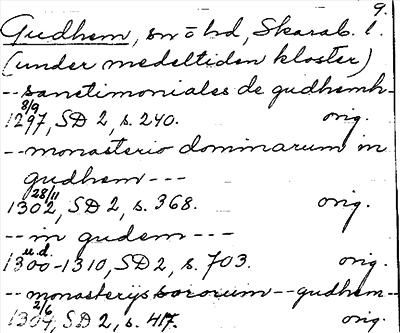 9.
Gudhem, sn o hd, Skarab. l.
(under medeltiden kloster)
-- sanctimoniales de gudhemh-
8/9
1297, SD 2, s. 240. orig.
-- monasterio dominarum in
gudhem ---
28/11
1302, SD 2, s. 368. orig.
-- in gudem ---
u.d.
1300-1310, SD 2, s. 703. orig.
-- monasterij sororum -- gudhem --
2/6
1304, SD 2, s. 417. orig.